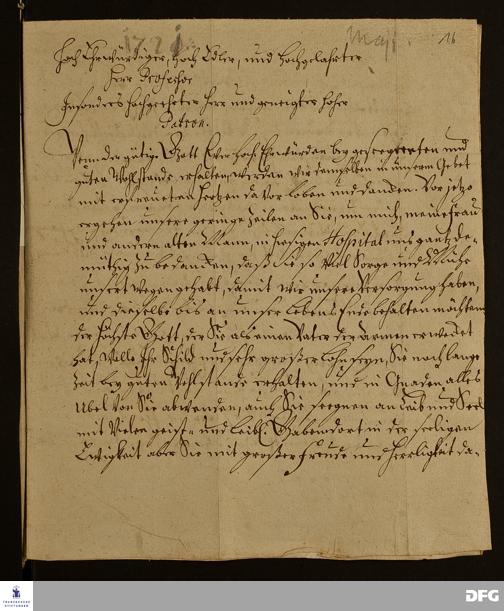 1721. Maji. 16
Hoch Ehrwürdiger, Hoch Edler, und Hochgelahrter
Herr Professor
Insonders hochgeehrter Herr und geneigter hoher
Patron.
Wenn der gütige Gott Ewer Hoch Ehrwürden bey geseegneten und
guten Wohlstande erhalten, werden wir demselben in unserm Gebet
mit erfreueten Hertzen davor loben und dancken. Vor jetzo
ergehen unsere geringe Zeilen an Sie, um mich, meine Frau
und andern alten Mann, in hiesigen Hospital uns gantz de-
müthig zu bedancken, daß Sie so viel Sorge und Mühe
unsert wegen gehabt, damit wir unsere Versorgung haben,
und dieselbe bis an unser Lebens Ende behalten möchten
der höchste Gott, der Sie als einen Vater der Armen erwecket
hat, wolle Ihr Schild und sehr großer Lohn seyn, Sie noch lange
Zeit bey guten Wohlstande erhalten, und in Gnaden alles
Übel von Sie abwenden, auch Sie seegnen an Leib und Seel
mit vielen geist- und leibl. Gaben, dort in der seeligen
Ewigkeit aber Sie mit großer Freude und Herrligkeit da-
FRANCKESCHE
STIFTUNGEN
DFG